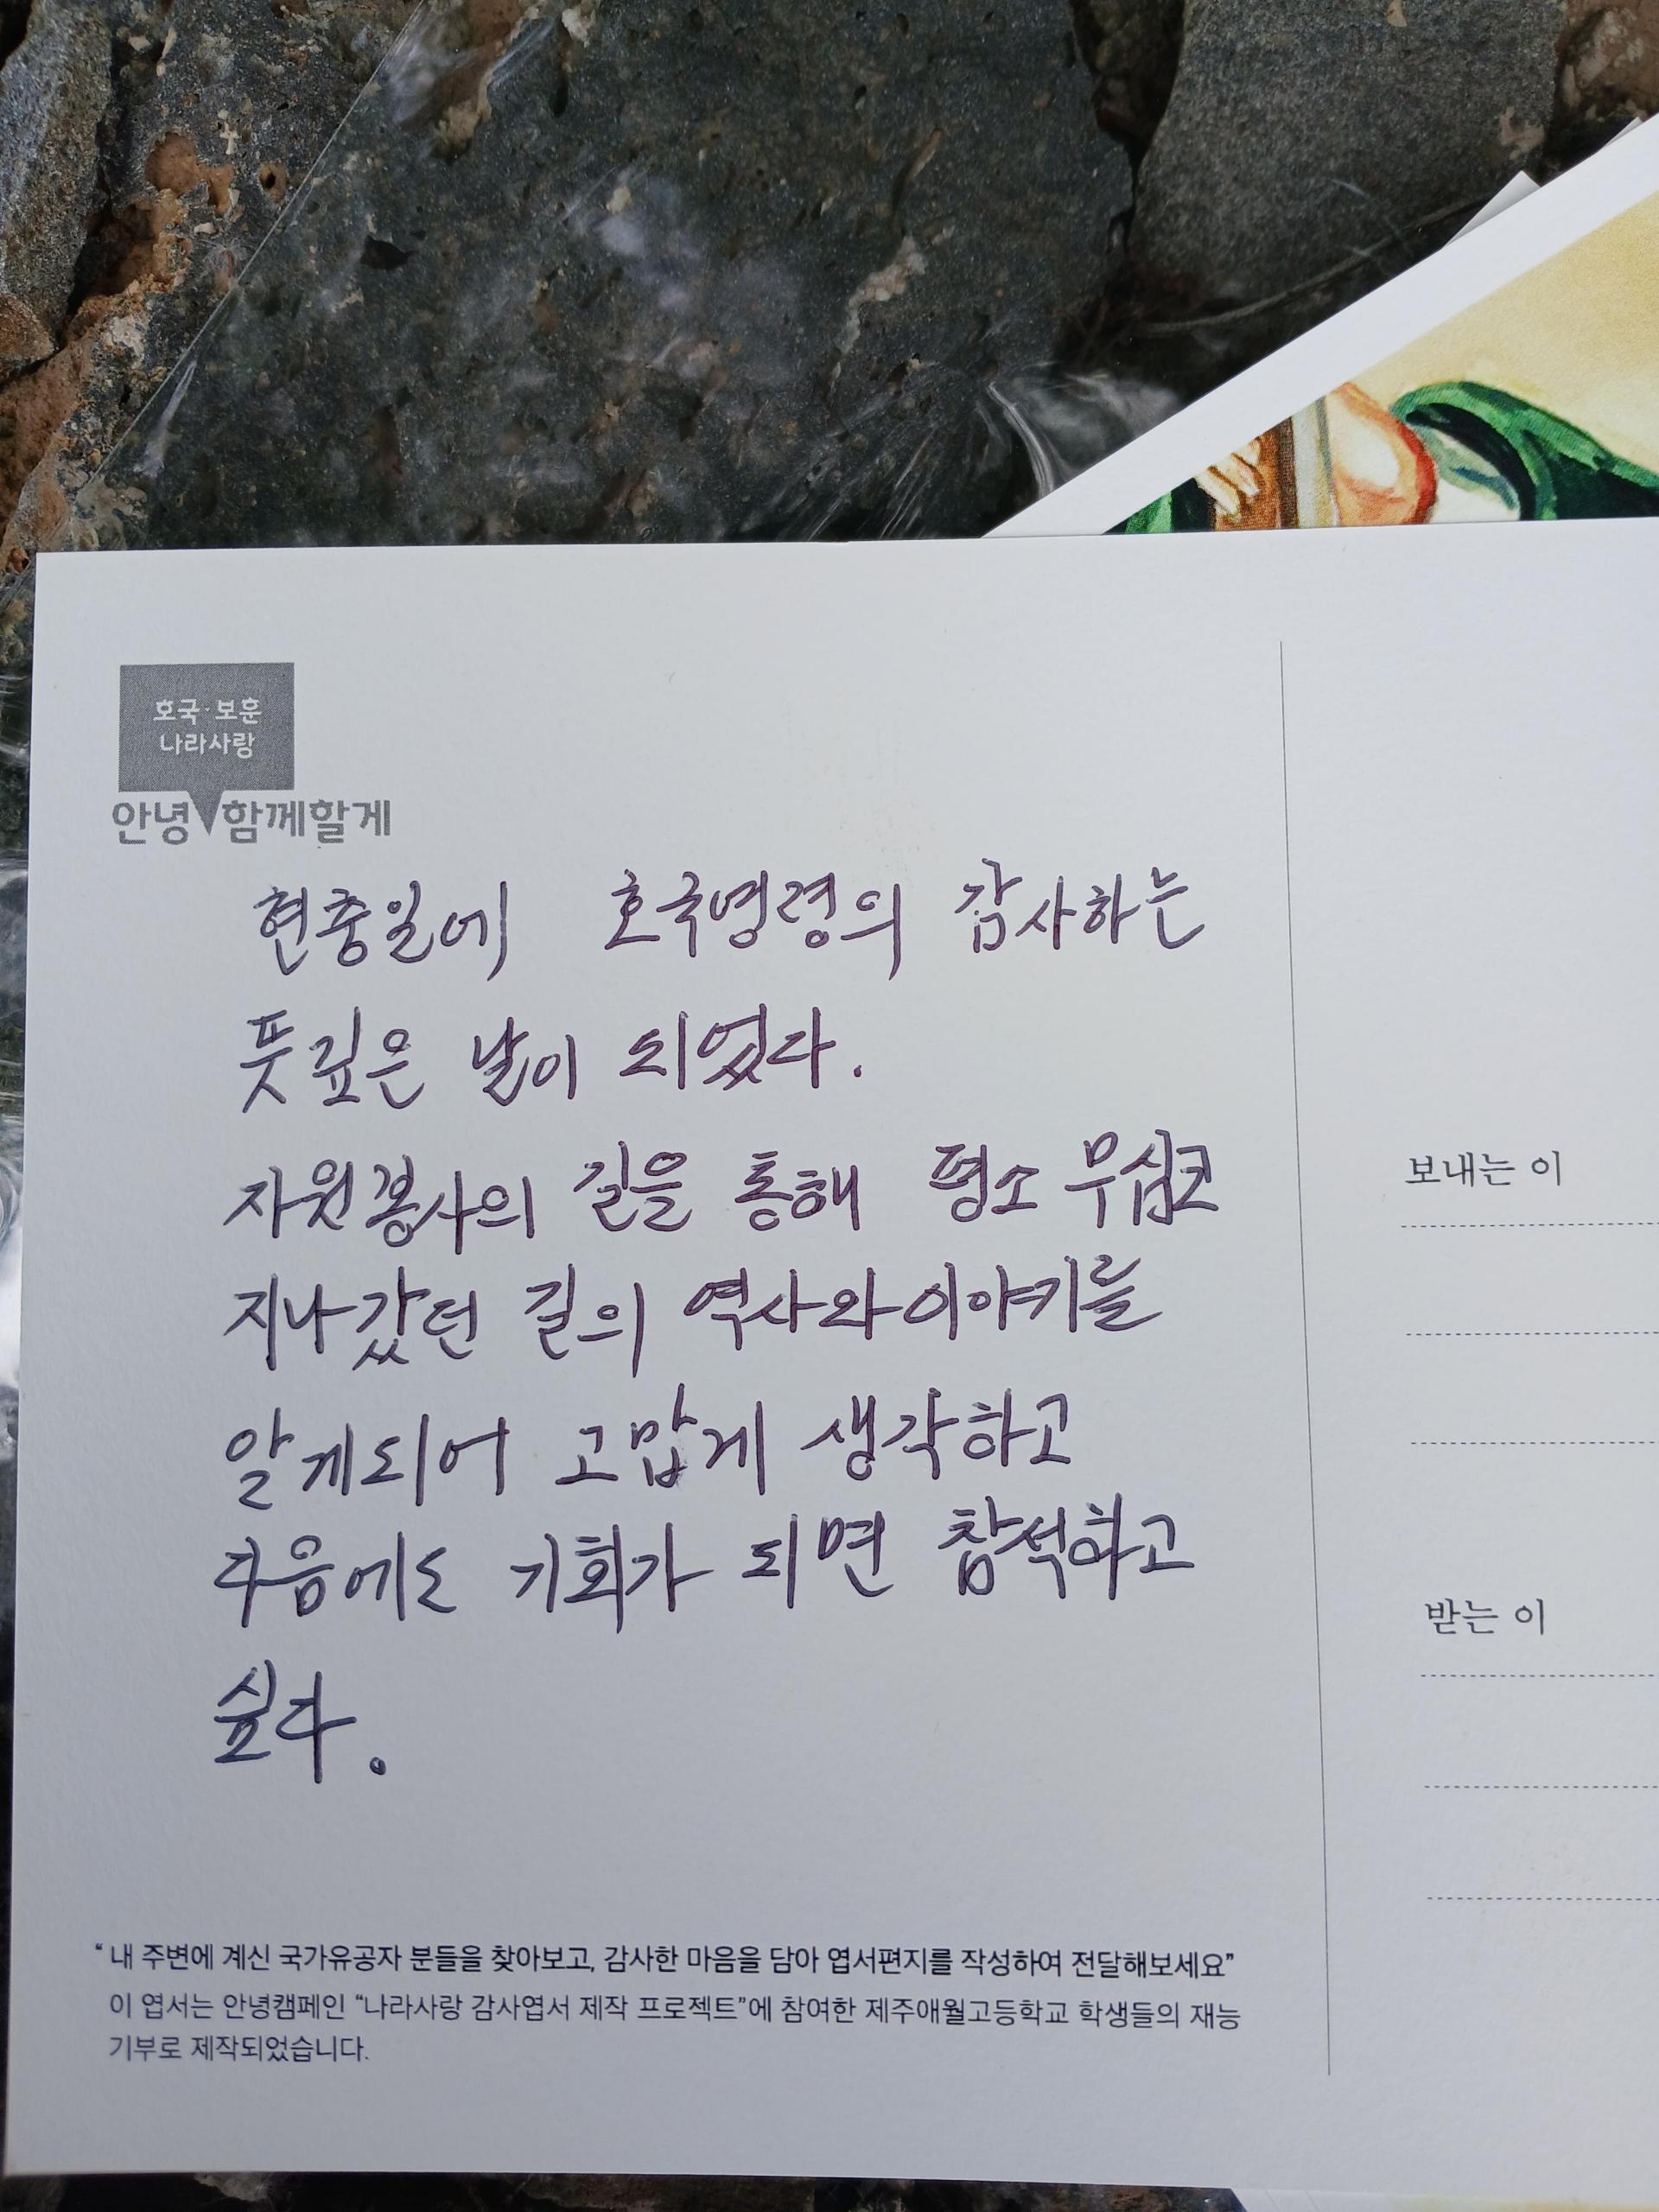 호국·보훈
나라사랑
안녕 함께할게
현충일에 호국영령의 감사하는
뜻깊은 날이 되었다.
자원봉사의 길을 통해 평소 무심코
지나갔던 길의 역사와 이야기를
알게되어 고맙게 생각하고
다음에도 기회가 되면 참석하고
싶다.
보내는 이
받는 이
“내 주변에 계신 국가유공자 분들을 찾아보고, 감사한 마음을 담아 엽서편지를 작성하여 전달해보세요”
이 엽서는 안녕캠페인 “나라사랑 감사엽서 제작 프로젝트”에 참여한 제주애월고등학교 학생들의 재능
기부로 제작되었습니다.